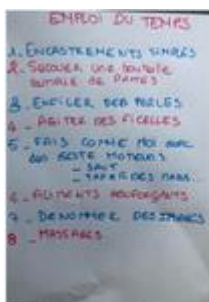 EMPLOI DU TEMPS
1. ENCASTREMENTS SIMPLES
2. SECOUER une bouteille
remplie de PATES
3. ENFILER DES PERLES
4 _ AGITER DES FICELLES
5 _ FAIS COMME MOI avec
des GESTE MOTEURS
_ SAUT
_ TAPER DES MAINS...
6 _ ALIMENTS
7 _ DENOMMER DES IMAGES
8 _ MASSAGES